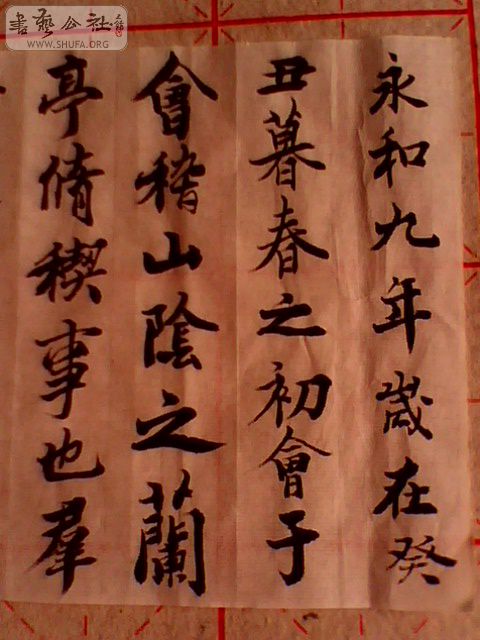 永和九年歲在癸
丑暮春之初會于
會稽山陰之蘭
亭脩稧事也羣
書藝公社
www.SHUFA.ORG